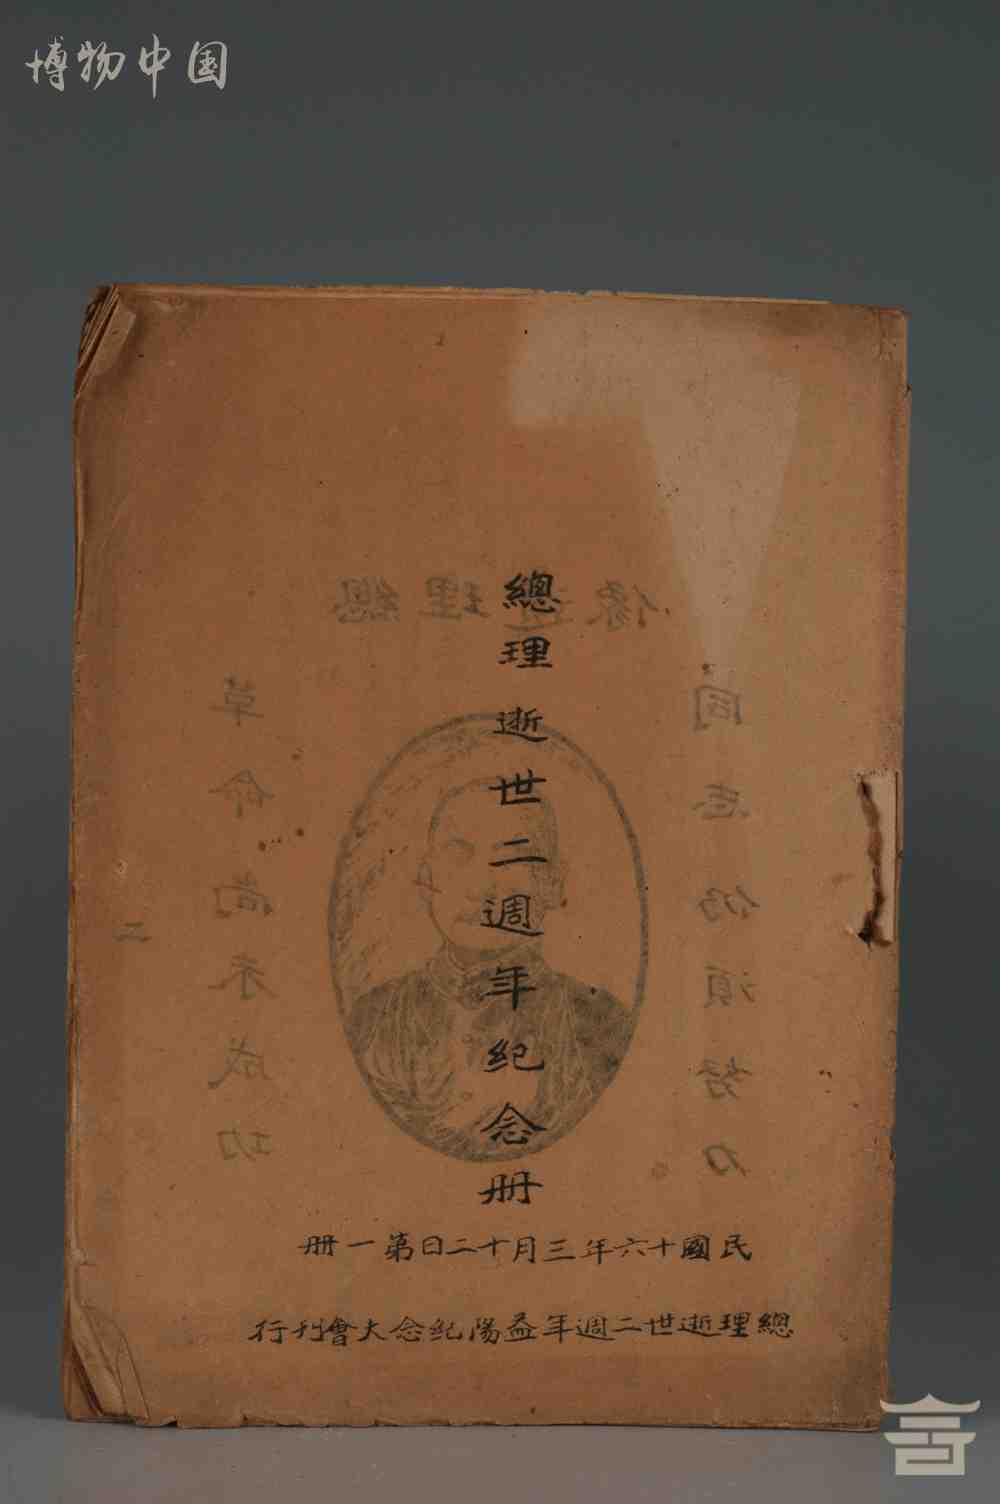 博物中国
總理逝世二週年紀念册
民國十六年三月十二日第一册
總理逝世二週年益陽紀念大會刊行
總理遺像
同志仍須努力
革命尚未成功
二